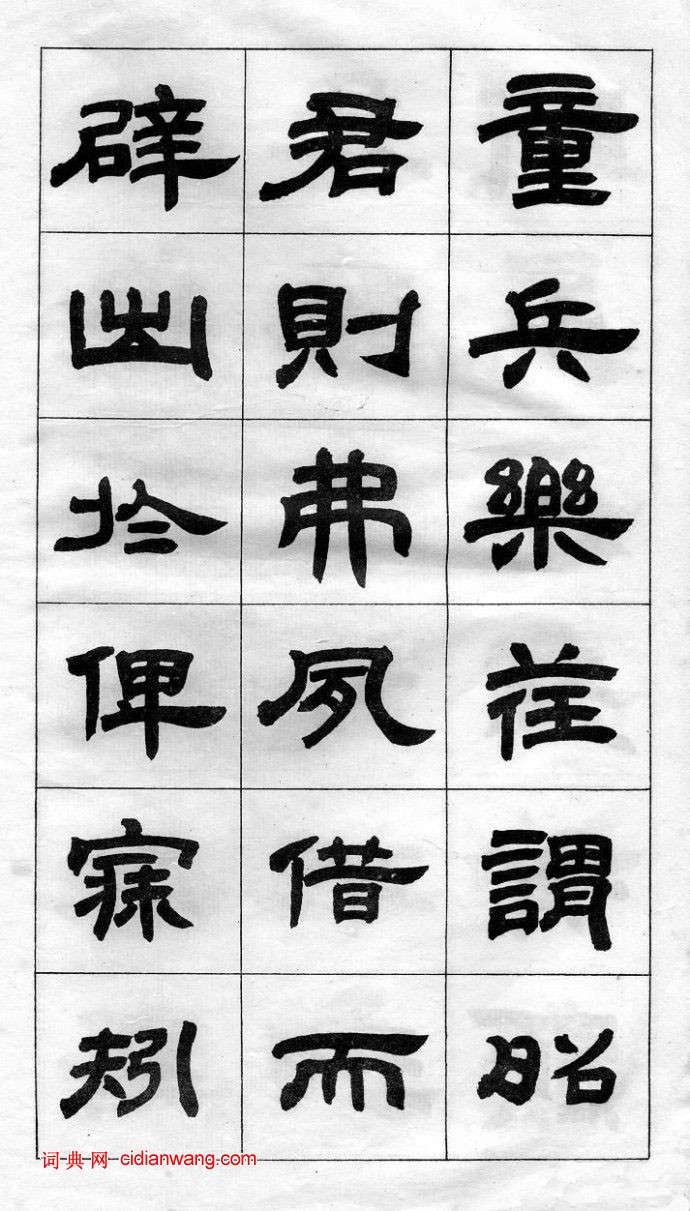 童兵樂謂昭
君則弗夙借而
辟出於俾寐矧
词典网 cidianwang.com